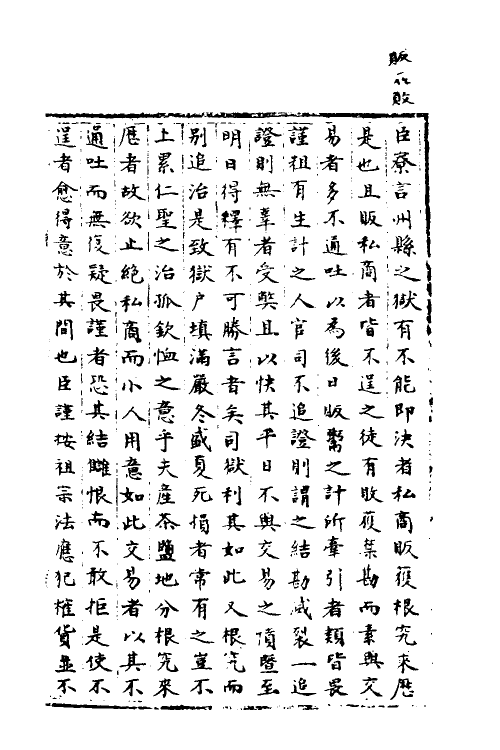 販疑敗
臣寮言州縣之獄有不能即決者私商販獲根究來歷
是也且販私商者皆不逞之徒有敗獲葉勘而素與交
易者多不通吐以為後日販鬻之計所牽引者類皆畏
謹粗有生計之人官司不追證則謂之結勘滅裂一追
證則無辜者受弊且以快其平日不與交易之憤暨至
明日得釋有不可勝言者矣司獄利其如此又根究而
別追治是致獄戶填滿嚴冬盛夏死損者常有之豈不
上累仁聖之治孤欽恤之意乎夫產茶鹽地分根究來
歷者故欲止絕私商而小人用意如此交易者以其不
通吐而無復疑畏謹者恐其結讎恨而不敢拒是使不
逞者愈得意於其間也臣謹按祖宗法應犯榷貨並不